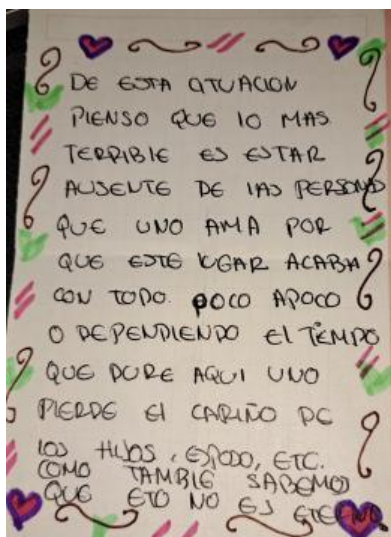 DE ESTA CITUACION
PIENSO QUE lO MAS
TERRIBlE ES ESTAR
AUSENTE DE lAS PERSONAS
QUE UNO AMA POR
QUE ESTE lUGAR ACABA
CON TODO. POCO APOCO
O DEPENDIENDO El TIEMPO
QUE DURE AQUI UNO
PIERDE El CARIÑO DE
lOS HIJOS, ESPOSO, ETC.
COMO TAMBIE SABEMOS
QUE ETO NO ES ETERNO